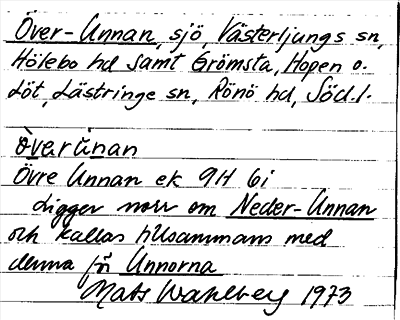 Över-Unnan, sjö, Västerljungs sn,
Hölebo hd samt Grömsta, Hopen o.
Löt, Lästringe sn, Rönö hd, Söd.l.
överùnan
Övre Unnan ek 9H 6i
Ligger norr om Neder-Unnan
och kallas tillsammans med
denna Unnorna
Mats Wahlberg 1973